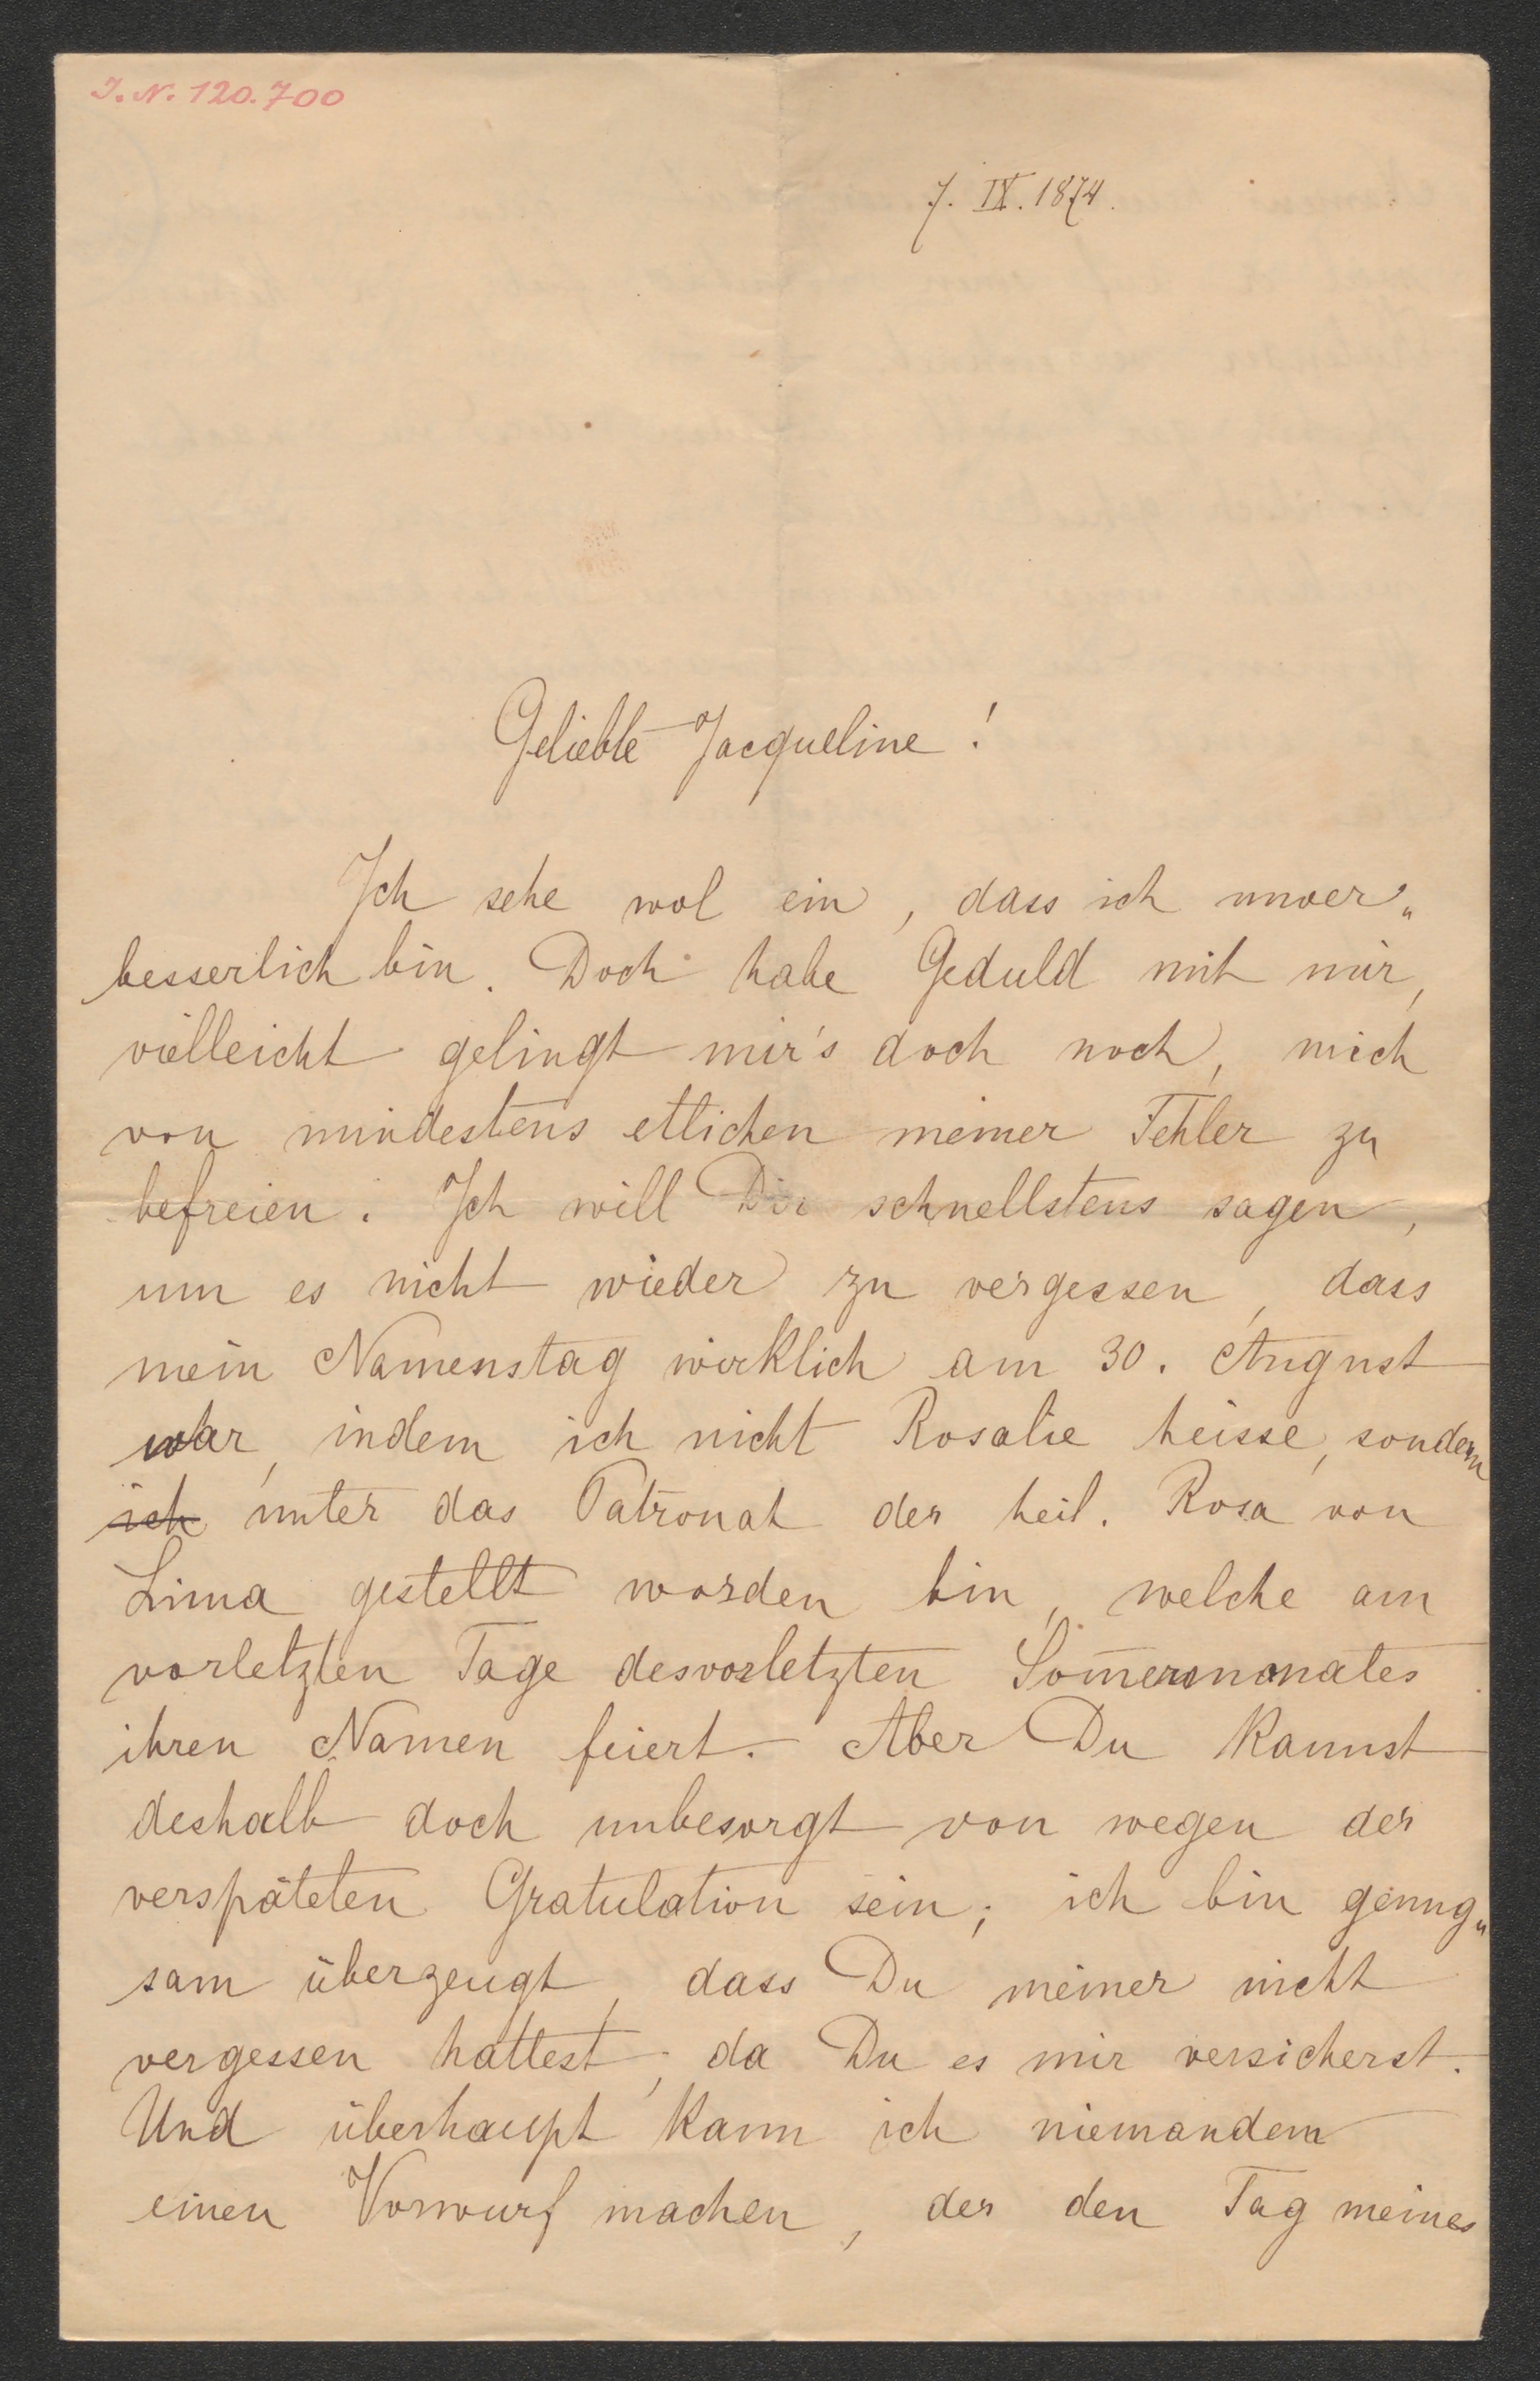 I. N. 120.700
7. IX. 1874.
Geliebte Jacqueline!
Ich sehe wol ein, dass ich unver„
besserlich bin. Doch habe Geduld mit mir,
vielleicht gelingt mir's doch noch, mich
von mindestens etlichen meiner Fehler zu
befreien. Ich will Dir schnellstens sagen,
um es nicht wieder zu vergessen, dass
mein Namenstag wirklich am 30. August
war, indem ich nicht Rosalie heisse, sondern
ich unter das Patronat der heil. Rosa von
Lima gestellt worden bin, welche am
vorletzten Tage desvorletzten Som̄ermonates
ihren Namen feiert. Aber Du kannst
deshalb doch unbesorgt von wegen der
verspäteten Gratulation sein; ich bin genug„
sam überzeugt, dass Du meiner nicht
vergessen hattest, da Du es mir versicherst.
Und überhaupt kann ich niemandem
einen Vorwurf machen, der den Tag meines